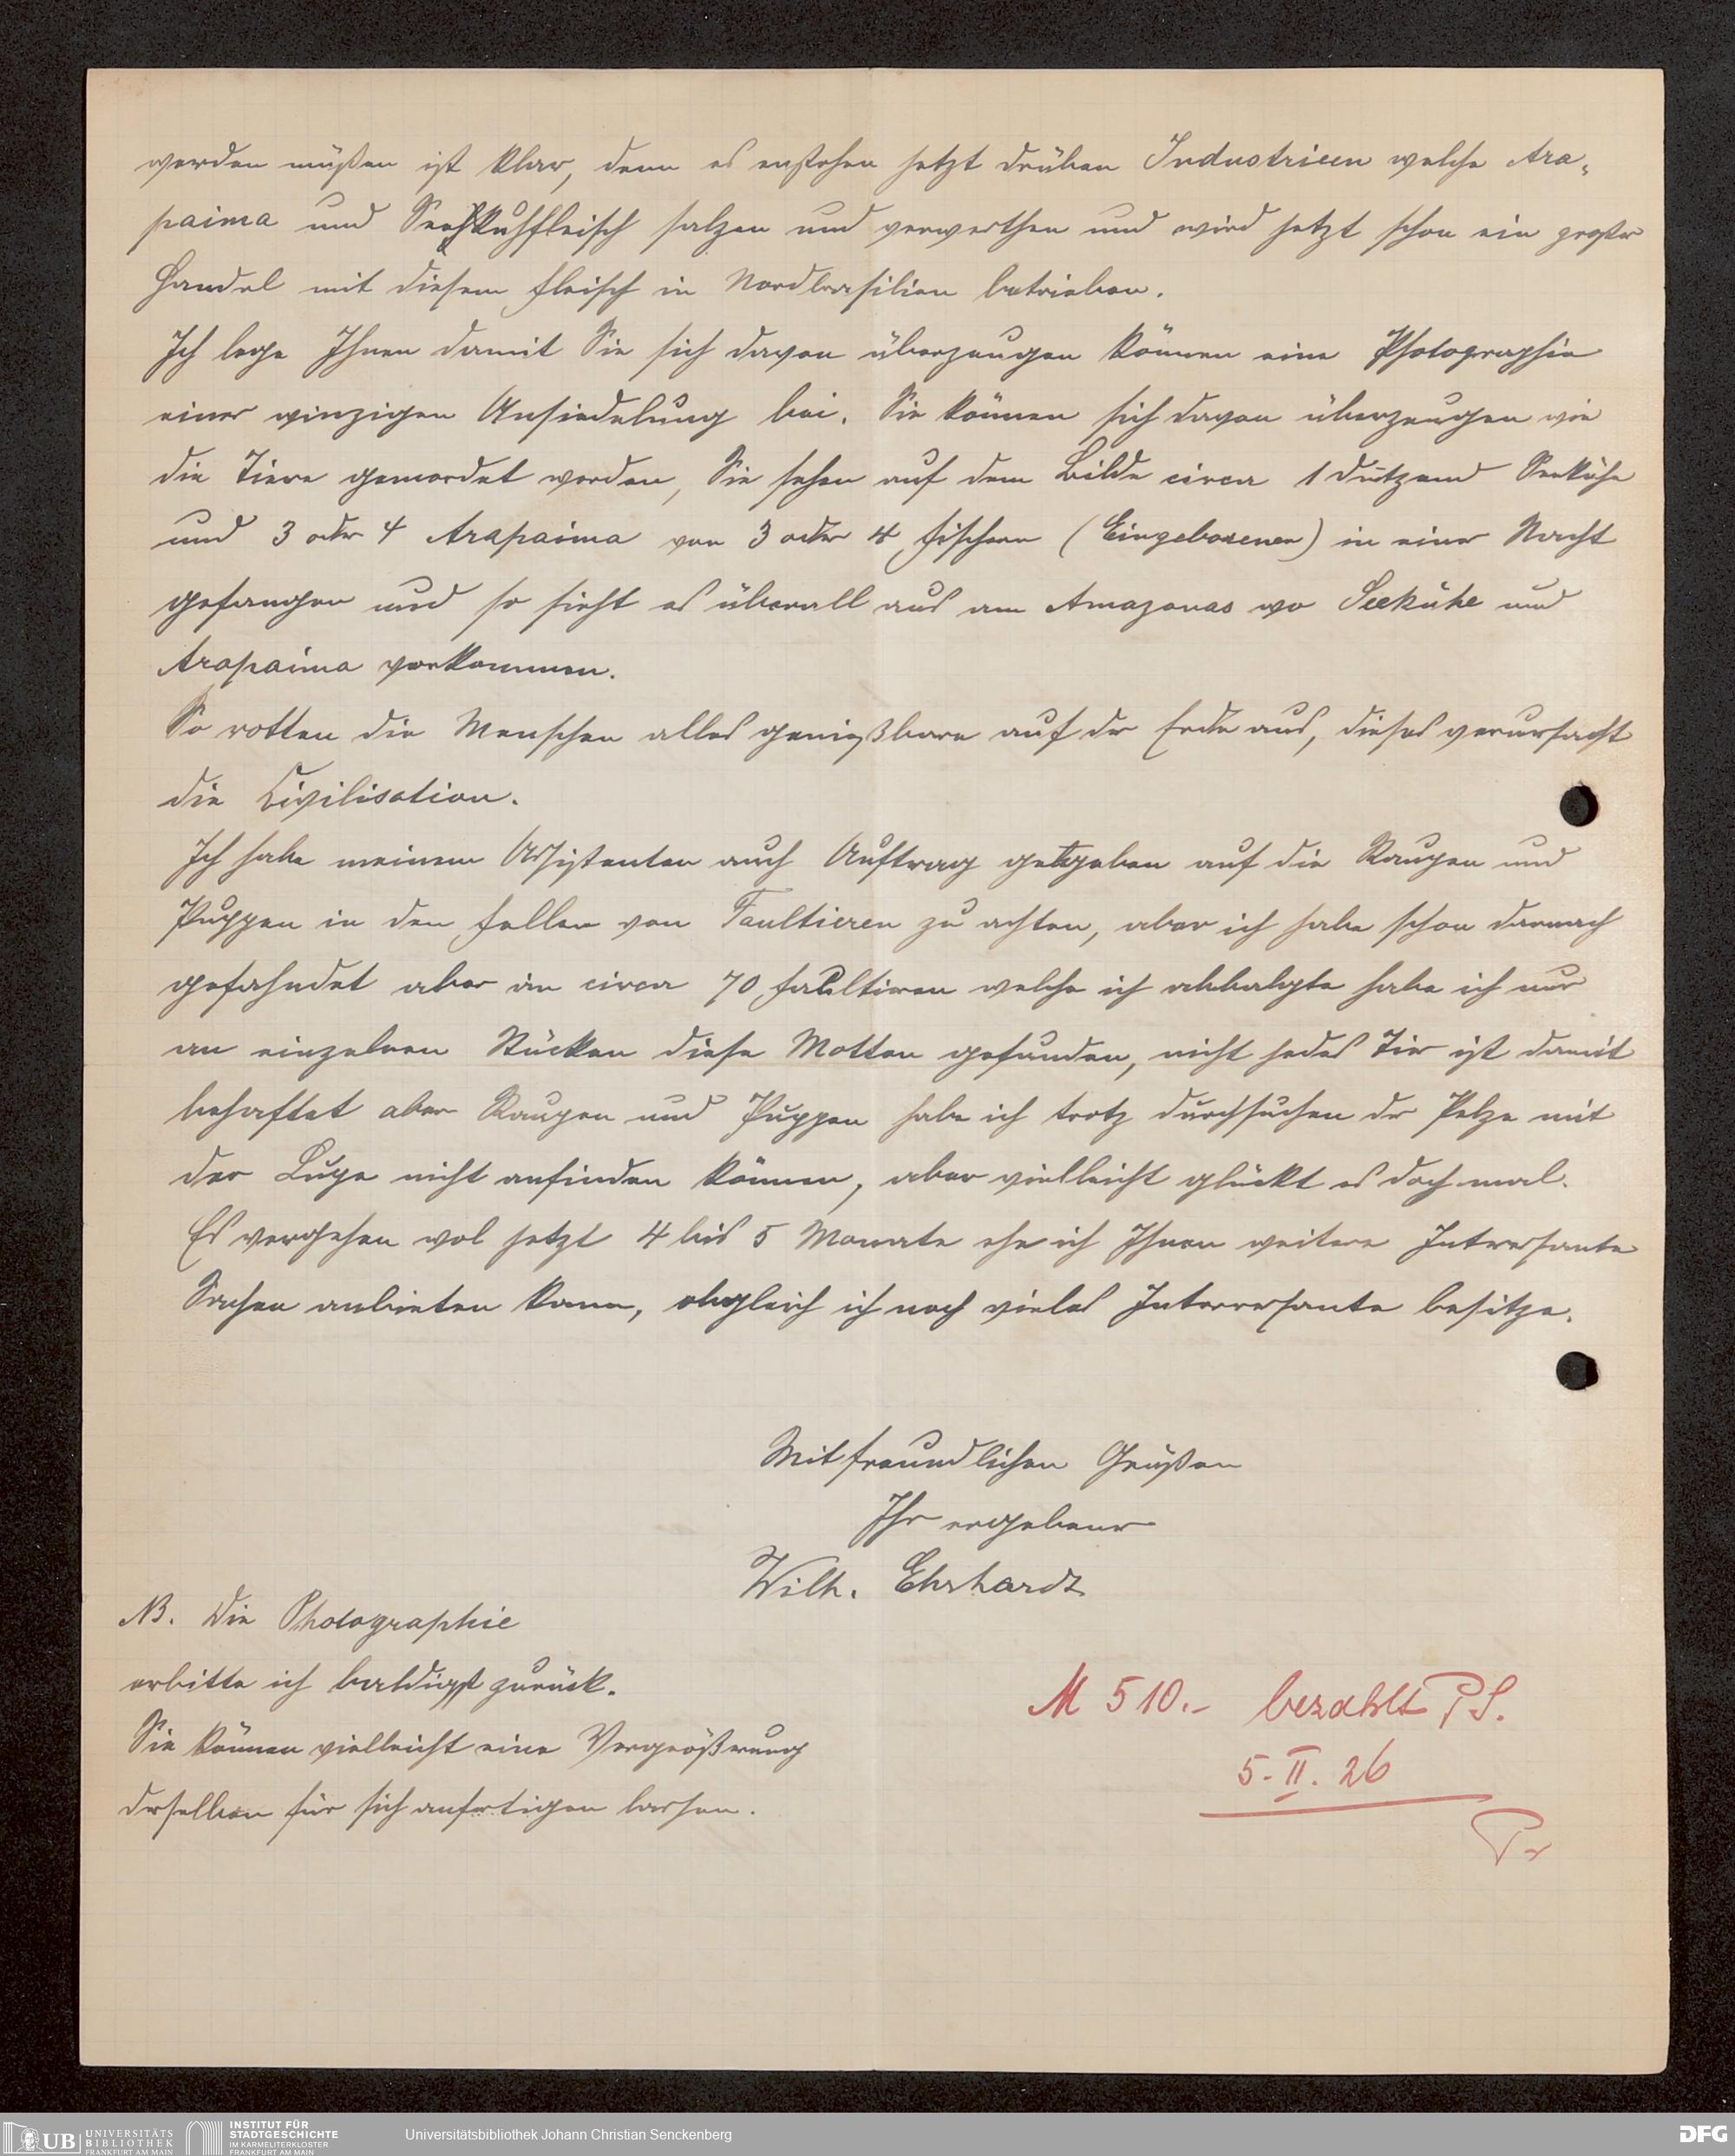 werden müßen ist klar, denn es enstehen jetzt drüben Industrieen welche Ara-
paima und Seekuhfleisch salzen und verwerthen und wird jetzt schon ein großer
Handel mit diesem Fleisch in Nordbrasilien betrieben.
Ich lege Ihnen damit Sie sich davon überzeugen können eine Photographie
einer winzigen Ansiedelung bei. Sie können sich davon überzeugen wie
die Tiere gemordet werden, Sie sehen auf dem Bilde circa 1 Dutzend Seekühe
und 3 oder 4 Arapaima von 3 oder 4 Fischern (Eingeborenen) in einer Nacht
gefangen und so sieht es überall aus am Amazonas wo Seekühe und
Arapaima vorkommen.
So rotten die Menschen alles genießbare auf der Erde aus, dieses verursacht
die Civilisation.
Ich habe meinem Assistenten auch Auftrag gegeben auf die Raupen und
Puppen in den Fellen von Faultieren zu achten, aber ich habe schon darnach
gefahndet aber an circa 70 Faultieren welche ich abbalgte habe ich nur
an einzelnen Stücken diese Motten gefunden, nicht jedes Tier ist damit
behaftet aber Raupen und Puppen habe ich trotz durchsuchen der Pelze mit
der Lupe nicht anfinden können, aber vielleicht glückt es doch mal.
Es vergehen wol jetzt 4 bis 5 Monate ehe ich Ihnen weitere Intressante
Sachen anbieten kann, obgleich ich noch vieles Interressante besitze.
Mit freundlichen Grüßen
Ihr ergebener
Wilh. Ehrhardt
NB. Die Photographie
erbitte ich baldigst zurück.
Sie können vielleicht eine Vergrößerung
derselben für sich anfertigen lassen.
M 510.- bezahlt P S.
5. II. 26
UB UNIVERSITÄTS
BIBLIOTHEK
FRANKFURT AM MAIN
INSTITUT FÜR
STADTGESCHICHTE
IM KARMELITERKLOSTER
FRANKFURT AM MAIN
Universitätsbibliothek Johann Christian Senckenberg
DFG